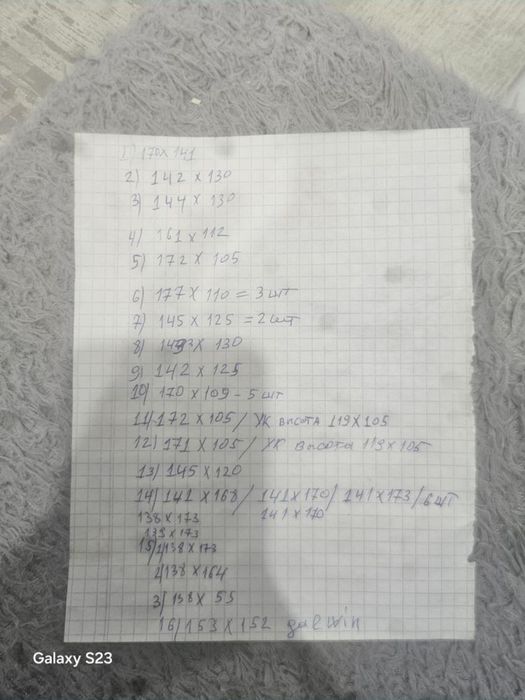 1) 170 x 141
2) 142 x 130
3) 144 x 130
4) 161 x 112
5) 172 x 105
6) 177 x 110 = 3 шт
7) 145 x 125 = 2 шт
8) 143 x 130
9) 142 x 125
10) 170 x 109 - 5 шт
11) 172 x 105 / УК высота 119 x 105
12) 171 x 105 / УК высота 119 x 105
13) 145 x 120
14) 141 x 168 / 141 x 170 / 141 x 173 / 6 шт
138 x 173 141 x 170
139 x 173
15) 1) 138 x 173
2) 138 x 164
3) 138 x 55
16) 153 x 152
Galaxy S23